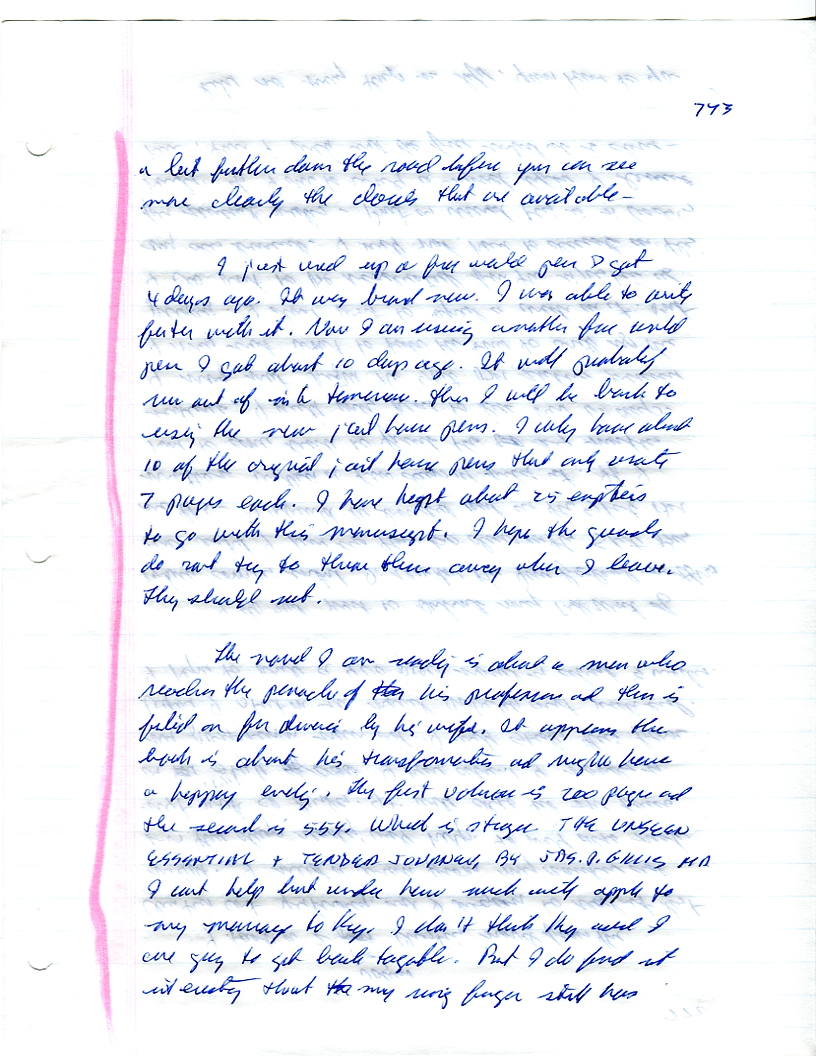 743
a bit further down the road before you can see
more clearly the clouds that are available -
I just used up a free world pen I got
4 days ago. It was brand new. I was able to write
faster with it. Now I am using another free world
pen I got about 10 days ago. It will probably
run out of ink tomorrow. then I will be back to
using the new jail house pens. I only have about
10 of the original jail house pens that only wrote
7 pages each. I have kept about 25 empties
to go with this manuscript. I hope the guards
do not try to throw them away when I leave.
They should not.
The novel I am reading is about a man who
reaches the pinacle of his profession and then is
filed on for divorce by his wife. It appears the
book is about his transformation and might have
a happy ending. The first volume is 200 pages and
the second is 554. What is strange THE UNSEEN
ESSENTIAL + TENDER JOURNEY, BY JAS. P. GILLS MD
I can't help but wonder how much will apply to
my marriage to Kay. I don't think Kay and I
are going to get back together. But I do find it
interesting that my ring finger still has